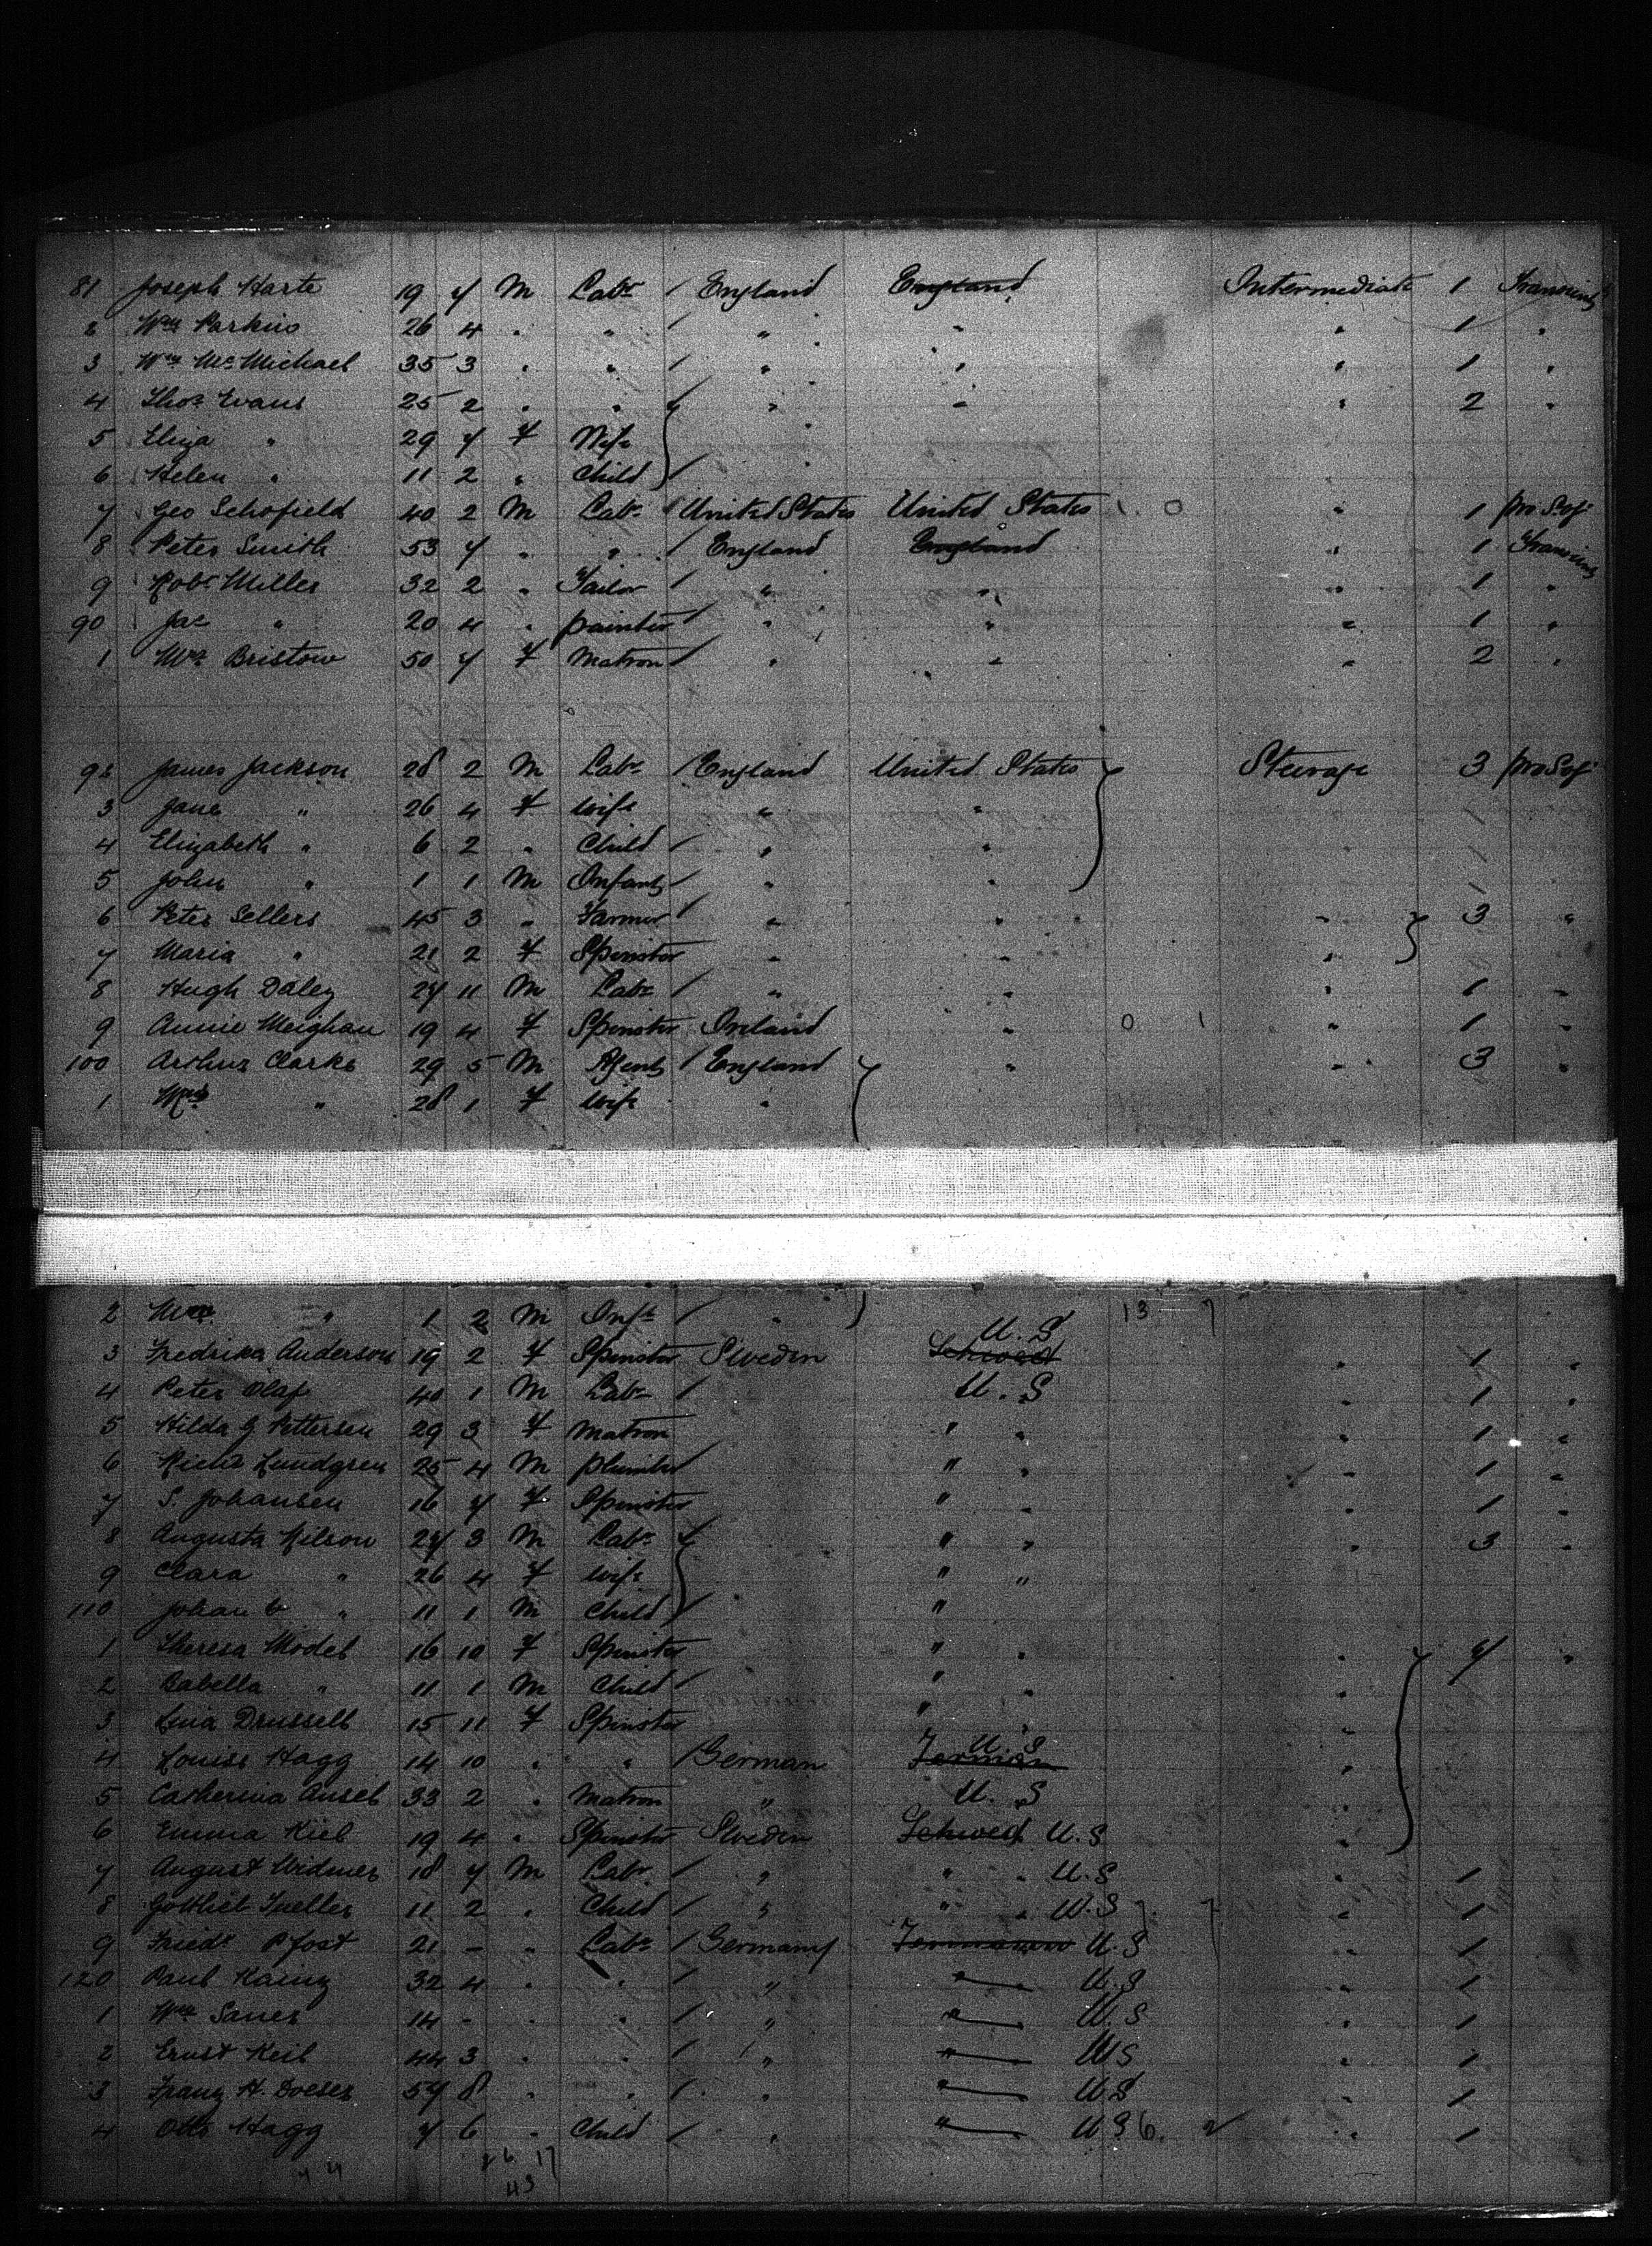 81 Joseph Harte 19 7 M Labr / England England Intermediate 1 Transient
2 Wm Parkins 26 4 " " / " " " 1 "
3 Wm McMichael 35 3 " " / " " " 1 "
4 Thos Evans 25 2 " " " " " 2 "
5 Eliza " 29 7 F Wife
6 Helen " 11 2 " Child /
7 Geo Schofield 40 2 M Labr / United States United States 0 " 1 pro Soj
8 Peter Smith 53 7 " " / England England " 1 Transient
9 Robt Miller 32 2 " Tailor / " " " 1 "
90 Jas " 20 4 " painter / " " " 1 "
1 Mrs Bristow 50 7 F Matron / " " " 2 "
92 James Jackson 28 2 M Labr / England United States Steerage 3 pro Soj
3 Jane " 26 4 F Wife " "
4 Elizabeth " 6 2 " Child / " "
5 John " 1 1 M Infant / " "
6 Peter Sellers 45 3 " Farmer / " " " 3 "
7 Maria " 21 2 F Spinster " " "
8 Hugh Daley 27 11 M Labr / " " " 1 "
9 Annie Meighan 19 4 F Spinster Ireland " 0 1 " 1 "
100 Arthur Clarke 29 5 M Agent / England " " 3 "
1 Mrs " 28 1 F Wife "
2 Wm " 1 2 M Inft / " 13 7
U. S
3 Fredrika Anderson 19 2 F Spinster Sweden Schwed " 1 "
4 Peter Olaf 40 1 M Labr / U. S " 1 "
5 Hilda G Pettersen 29 3 F Matron " " " 1 "
6 Richd Lundgren 25 4 M Plumber / " " " 1 "
7 S. Johansen 16 7 F Spinster " " " 1 "
8 Augusta Nilson 27 3 M Labr " " " 3 "
9 Clara " 26 4 F Wife " "
110 Johan " 11 1 M Child / "
1 Theresa Model 16 10 F Spinster " " " 7 "
2 Babella " 11 1 M Child / " " "
3 Lina Drussell 15 11 F Spinster " " "
U S
4 Louise Hagg 14 10 " " / German German "
5 Catherina Ansel 33 2 " Matron " U. S "
6 Emma Kiel 19 4 " Spinster Sweden Schwed U. S "
7 August Widmer 18 7 M Labr / " " " U. S " 1
8 Gottlieb 11 2 " Child / " " " U. S 7 7 " 1
9 Friedr Pfost 21 - " Labr / Germany U. S " 1
120 Paul Kainz 32 4 " " / " " U. S " 1
1 Wm Sauer 14 - " " / " " U. S " 1
2 Ernst Keil 44 3 " " / " " U S " 1
3 Franz H. Doeser 57 8 " " / " " U S " 1
4 Otto Hagg 7 6 " Child / " " U S 6. " 1
26 17
43